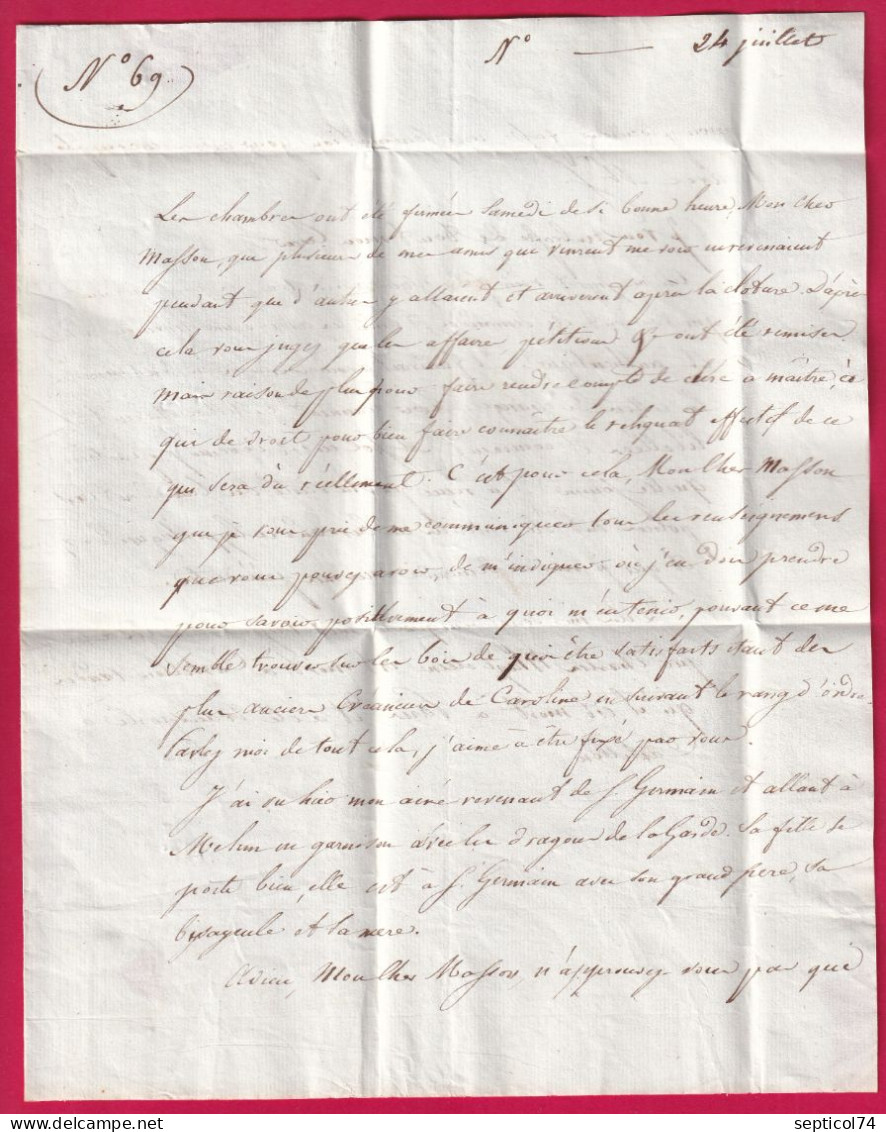 N° 69
N° — 24 juillet
Les chambres ont été fermées samedi de si bonne heure, Mon cher
Masson, que plusieurs de mes amis qui vinrent me voir en revenaient
pendant que d'autres y allaient et arriverent après la cloture. D'après
cela vous jugez que les affaires, pétitions &c ont été remises
mais raison de plus pour faire rendre compte de clerc à maître, à
qui de droit pour bien faire connaître le reliquat effectif de ce
qui sera dû réellement. C'est pour cela, Mon Cher Masson
que je vous prie de me communiquer tous les renseignemens
que vous pouvez avoir de m'indiquer où j'en dois prendre
pour savoir positivement à quoi m'en tenir, pouvant ce me
semble trouver sur les bois de quoi être satisfaits étant des
plus anciens Créanciers de Caroline en suivant le rang d'ordre
Parlez moi de tout cela, j'aime à être fixé par vous.
J'ai vu hier mon ainé revenant de St. Germain et allant à
Melun en garnison avec les dragons de la Garde. Sa fille se
porte bien, elle est à St. Germain avec son grand pere, sa
bisayeule et sa mere.
Adieu, Mon Cher Masson, n'approuvez vous pas que
septicol74